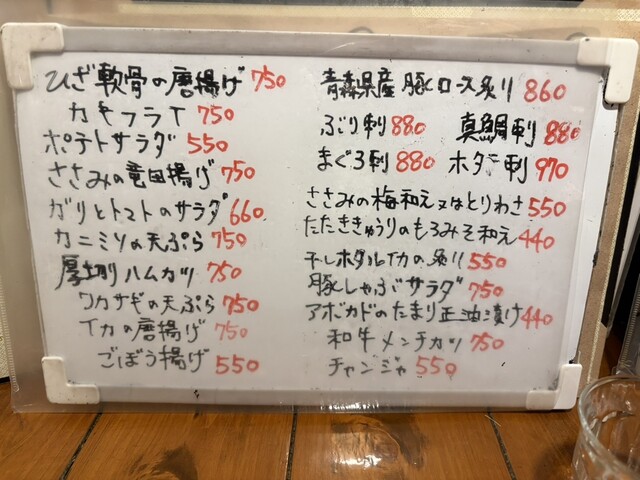 ひざ軟骨の唐揚げ 750
カキフライ 750
ポテトサラダ 550
ささみの竜田揚げ 750
ガリとトマトのサラダ 660
カニミソの天ぷら 750
厚切りハムカツ 750
ワカサギの天ぷら 750
イカの唐揚げ 750
ごぼう揚げ 550
青森県産 豚ロース炙り 860
ぶり刺 880 真鯛刺 880
まぐろ刺 880 ホタテ刺 970
ささみの梅和え又はとりわさ 550
たたききゅうりのもろみそ和え 440
干しホタルイカの炙り 550
豚しゃぶサラダ 750
アボカドのたまり正油漬け 440
和牛メンチカツ 750
チャンジャ 550